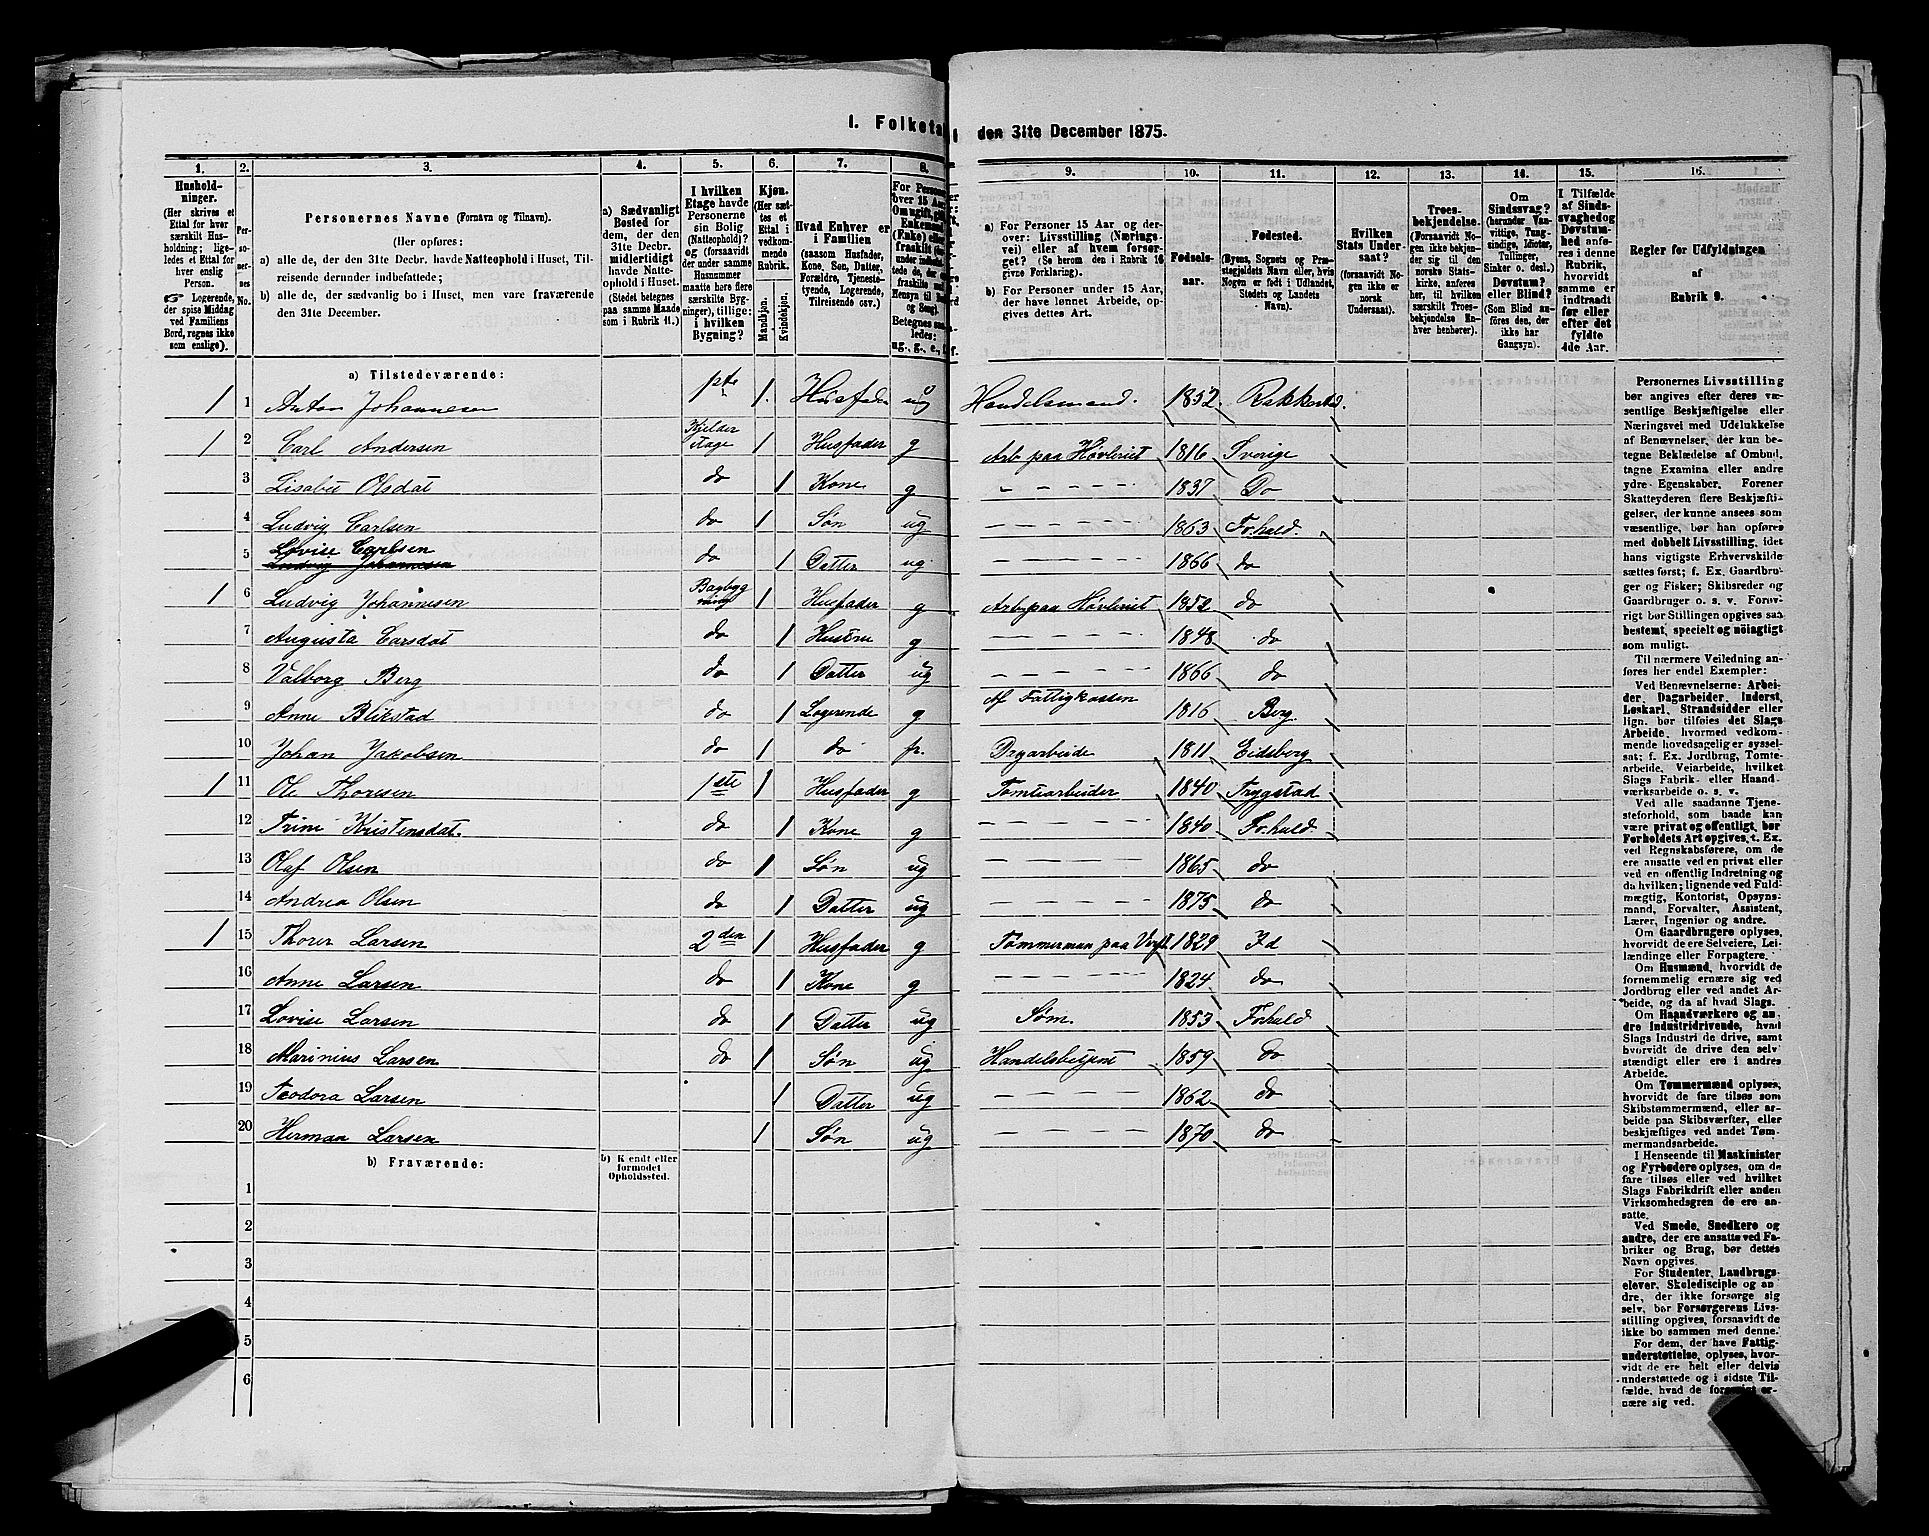 I. Folketal den 31te December 1875.
1.
Hushold-
ninger.
(Her skrives et
Ettal for hver
særskilt Hus-
holdning; lige-
ledes et Ettal for
hver enslig
Person.
Logerende,
der spise Middag
ved Familiens
Bord, regnes ikke
som enslige).
2.
Per-
so-
ner-
nes
No.
3.
Personernes Navne (Fornavn og Tilnavn).
(Her opføres:
a) alle de, der den 31te Decbr. havde Natteophold i Huset, Til-
reisende derunder indbefattede;
b) alle de, der sædvanlig bo i Huset, men vare fraværende
den 31te December.
4.
a) Sædvanligt
Bosted for
dem, der den
31te Decbr.
midlertidigt
havde Natte-
ophold i Huset.
(Stedet betegnes
paa samme Maade
som i Rubrik 11.)
5.
I hvilken
Etage havde
Personerne
sin Bolig
(Natteophold)?
og (forsaavidt
der under samme
Husnummer
maatte høre flere
særskilte Byg-
ninger), tillige:
i hvilken
Bygning?
6.
Kjøn.
(Her sæt-
tes et
Ettal i
vedkom-
mende
Rubrik.
Mandkjøn.
Kvindekjøn.
7.
Hvad Enhver er
i Familien
(saasom Husfader,
Kone, Søn, Datter,
Forældre, Tjeneste-
tyende, Logerende,
Tilreisende osv.)
8.
For Personer
over 15 Aar:
Betegnes saa-
ledes:
ug., g., e., f.
9.
a) For Personer 15 Aar og der-
over: Livsstilling (Nærings-
vei) eller af hvem forsør-
get? (Se herom den i Rubrik 16
givne Forklaring).
b) For Personer under 15 Aar,
der have lønnet Arbeide, op-
gives dettes Art.
10.
Fødsels-
aar.
11.
Fødested.
(Byens, Sognets og Præ-
stegjeldets Navn eller, hvis
Nogen er født i Udlandet,
Stedets og Landets
Navn).
12.
Hvilken
Stats Under-
saat?
(forsaavidt No-
gen ikke er
norsk
Undersaat).
13.
Troes-
bekjendelse.
(Forsaavidt No-
gen ikke bekjen-
der sig til den
norske Stats-
kirke, anføres
her, til hvilken
særskilt Troes-
bekjendelse En-
hver henhører).
14.
Om
Sindssvag?
(herunder Van-
vittige, Tung-
sindige, Idioter,
Tullinger,
Sinker o. desl.)
Døvstum?
eller Blind?
(Som Blind an-
føres den, der
ikke har
Gangsyn).
15.
I Tilfælde
af Sinds-
svaghed og
Døvstum-
hed anfø-
res i denne
Rubrik,
hvorvidt
samme er
indtraadt
før eller
efter det
fyldte
4de Aar.
16.
Regler for Udfyldningen
af
Rubrik 9.
a) Tilstedeværende:
1 1 Anton Johannesen 1ste 1. Husfader ug Handelsmand. 1852 Rakkestad.
1 2 Carl Andersen Kjelder Etage 1 Husfader g Arb paa Høvleriet 1816 Sverige
3 Lisabet Olsdat do 1 Kone g — 1837 Do
4 Ludvig Carlsen do 1 Søn ug — 1863 Frhald.
5 Lovise Carlsen do 1 Datter ug. — 1866 do
Ludvig Johannesen
1 6 Ludvig Johannesen Bagbyg ning 1 Husfader g Arb paa Høvleriet 1852 do
7 Augusta Larsdat do 1 Hustru g — 1848 do
8 Valborg Berg do 1 Datter ug — 1866 do
9 Anne Blikstad do 1 Logerende g Af Fattigkassen 1816 Berg
10 Johan Jakobsen do 1 do fr. Dagarbeide 1811 Eidsberg
1 11 Ole Thoresen 1ste 1 Husfader g Tomtearbeider 1840 Trygstad
12 Trine Kristensdat. do 1 Kone g — 1840 Frhald
13 Olaf Olsen do 1 Søn ug — 1865 do
14 Andrea Olsen do 1 Datter ug — 1875 do
1 15 Thorer Larsen 2den 1 Husfader g Tømmerman paa Verft. 1829 Id
16 Anne Larsen do 1 Kone g — 1824 do
17 Lovise Larsen do 1 Datter ug Søm. 1853 Frhald
18 Marinius Larsen do 1 Søn ug Handelsbetjent 1859 do
19 Teodora Larsen 1 Datter ug — 1862 do
20 Herman Larsen 1 Søn ug — 1870 do
b) Fraværende:
b) Kjendt eller
formodet
Opholdssted.
1
2
3
4
5
6
Personernes Livsstilling
bør angives efter deres væ-
sentlige Beskjæftigelse eller
Næringsvei med Udelukkelse
af Benævnelser, der kun be-
tegne Beklædelse af Ombud,
tagne Examina eller andre
ydre Egenskaber. Forener
Skatteyderen flere Beskjæfti-
gelser, der kunne ansees som
væsentlige, bør han opføres
med dobbelt Livsstilling, idet
hans vigtigste Erhvervskilde
sættes først; f. Ex. Gaardbru-
ger og Fisker; Skibsreder og
Gaardbruger o. s. v. Forøv-
rigt bør Stillingen opgives saa
bestemt, specielt og nöiagtigt
som muligt.
Til nærmere Veiledning an-
føres her endel Exempler:
Ved Benævnelserne: Arbei-
der, Dagarbeider, Inderst,
Løskarl, Strandsidder eller
lign. bør tilføies det Slags
Arbeide, hvormed vedkom-
mende hovedsagelig er syssel-
sat; f. Ex. Jordbrug, Tomte-
arbeide, Veiarbeide, hvilket
Slags Fabrik- eller Haand-
værksarbeide o. s. v.
Ved alle saadanne Tjene-
steforhold, som baade kan
være privat og offentligt, bør
Forholdets Art opgives, t. Ex.
ved Regnskabsførere, om de
ere ansatte ved en privat eller
ved en offentlig Indretning og
da hvilken; lignende ved Fuld-
mægtig, Kontorist, Opsyns-
mand, Forvalter, Assistent,
Lærer, Ingeniør og andre.
Om Gaardbrugere oplyses,
hvorvidt de ere Selveiere, Lei-
lændinge eller Forpagtere.
Om Husmænd, hvorvidt de
fornemmelig ernære sig ved
Jordbrug eller ved andet Ar-
beide, og da af hvad Slags.
Om Haandværkere og an-
dre industridrivende, hvad
Slags Industri de drive, samt
hvorvidt de drive den selv-
stændigt eller ere i andres
Arbeide.
Om Tømmermænd oplyses,
hvorvidt de fare tilsøs som
Skibstømmermænd, eller ar-
beide paa Skibsværfter, eller
beskjæftiges ved andet Tøm-
mermandsarbeide.
I Henseende til Maskinister
og Fyrbødere oplyses, om de
fare tilsøs eller ved hvilket
Slags Fabrikdrift eller anden
Virksomhedsgren de ere an-
satte.
Ved Smede, Snedkere og
andre, der ere ansatte ved Fa-
briker og Brug, bør dettes
Navn opgives.
For Studenter, Landbrugs-
elever, Skoledisciple og an-
dre, der ikke forsørge sig
selv, bør Forsørgerens Livs-
stilling opgives, forsaavidt de
ikke bo sammen med denne.
For dem, der have Fattig-
understøttelse, oplyses, hvor-
vidt de ere helt eller delvis
understøttede og i sidste Til-
fælde, hvad de forøvrigt er-
nære sig ved.